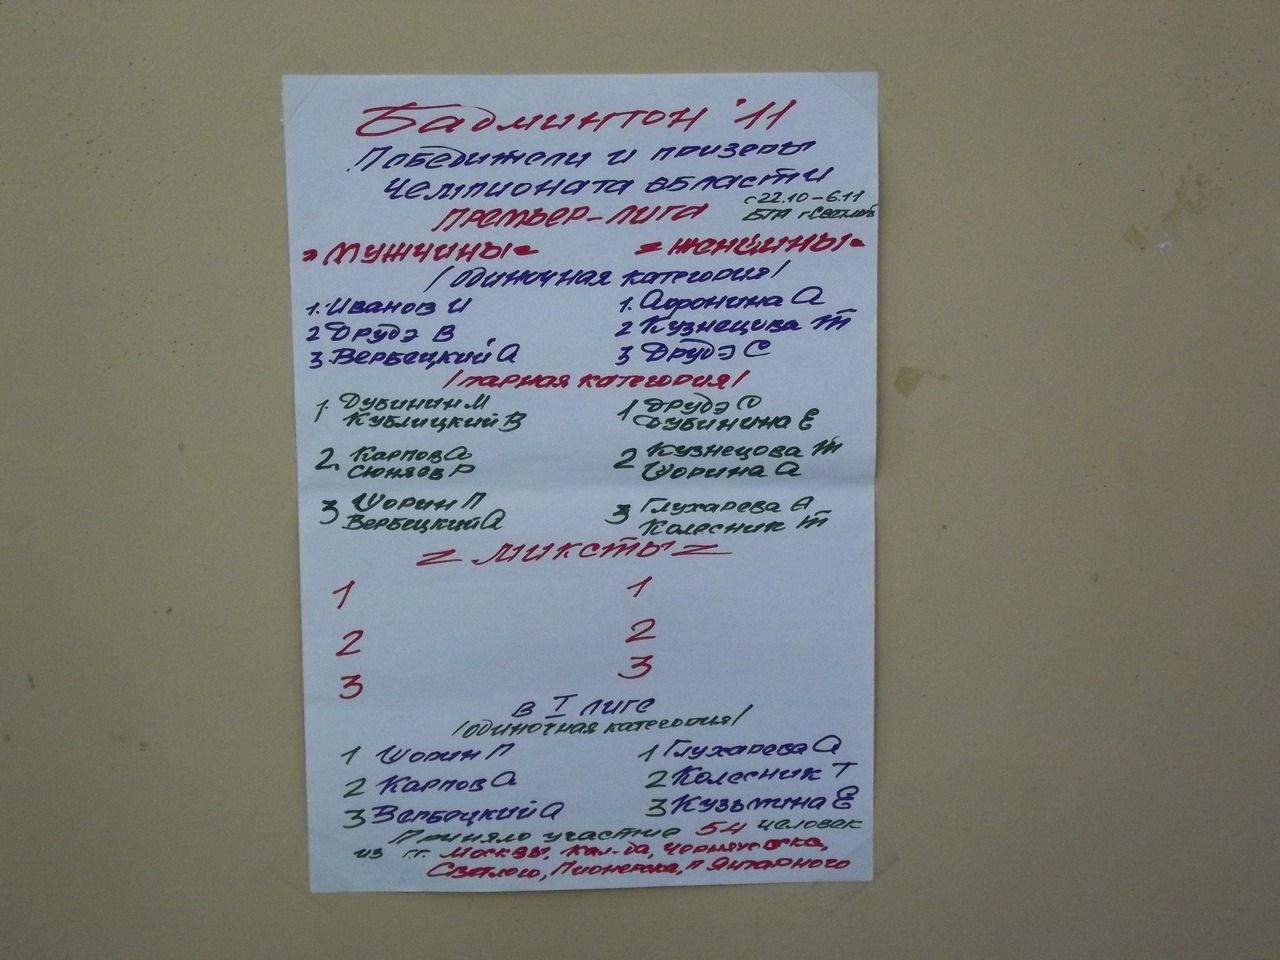 Бадминтон '11
Победители и призеры
Чемпионата области
с 22.10-6.11
Премьер-лига
БТА г. Светлый
Мужчины
Женщины
/одиночная категория/
1. Иванов И
2 Друдэ В
3 Вербецкий А
1. Афонина А
2 Кузнецова Т
3 Друдэ С
/парная категория/
1. Дубинин М
Кублицкий В
2. Карпов А
Сюняев Р
3 Шорин П
Вербецкий А
1 Друдэ С
Дубинина Е
2 Кузнецова Т
Шорина А
3 Глухарева А
Колесник Т
= Миксты =
1
2
3
1
2
3
в I лиге
/одиночная категория/
1 Шорин П
2 Карпов А
3 Вербецкий А
1 Глухарева А
2 Колесник Т
3 Кузьмина Е
Приняло участие 54 человек
из г.г. Москвы, Кал-да, Черняховска,
Светлого, Пионерска, п Янтарного